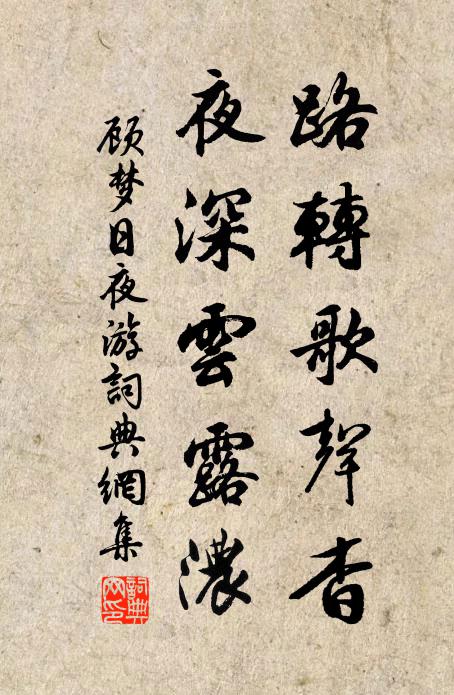 路轉歌聲杳
夜深雲露濃
顾梦日夜游詞典網集
詞典